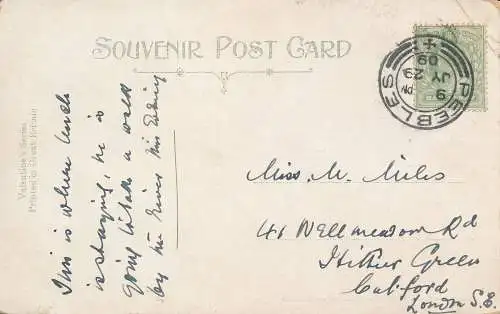 SOUVENIR POST CARD
Valentine's Series
Printed in Great Britain
PEEBLES
9 PM
JY 29
09
This is where Uncle
is staying, he is
going to take a walk
by the river this evening
Miss M. Miles
41 Wellmeadow Rd
Hither Green
Catford
London S.E.